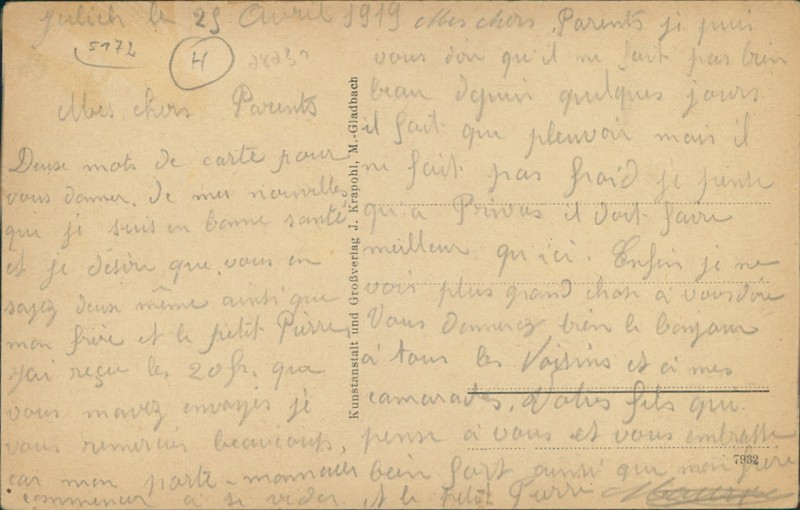 Julich le 25 Avril 1919
5172
H
Mes chers Parents
Deux mots de carte pour
vous donner de mes nouvelles
que je suis en bonne santé
et je désire que vous en
soyez deux même ainsi que
mon frère et le petit Pierre
j'ai reçu les 20 frs que
vous mavez envoyés je
vous remercie beaucoup,
car mon porte-monnaie
commencer à se vider
Kunstanstalt und Großverlag J. Krapohl, M.-Gladbach
Mes chers Parents je puis
vous dire qu'il ne fait pas bien
beau depuis quelques jours
il fait que pleuvoir mais il
ne fait pas froid je pense
qu'a Privas il doit faire
meilleur qu'ici. Enfin je ne
vois plus grand chose a vous dire
Vous donnerez bien le bonjour
à tous les Voisins et à mes
camarades. Votre fils qui
pense à vous et vous embrasse
7932
bien fort ainsi que mon frère
et le petit Pierre